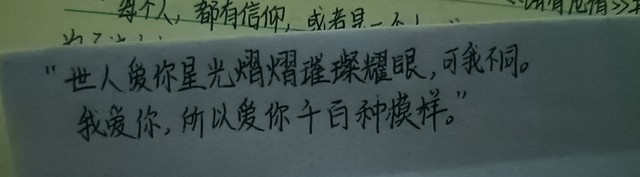 每个人，都有信仰，或者是一个人
"世人爱你星光熠熠璀璨耀眼，可我不同。
我爱你，所以爱你千百种模样。"